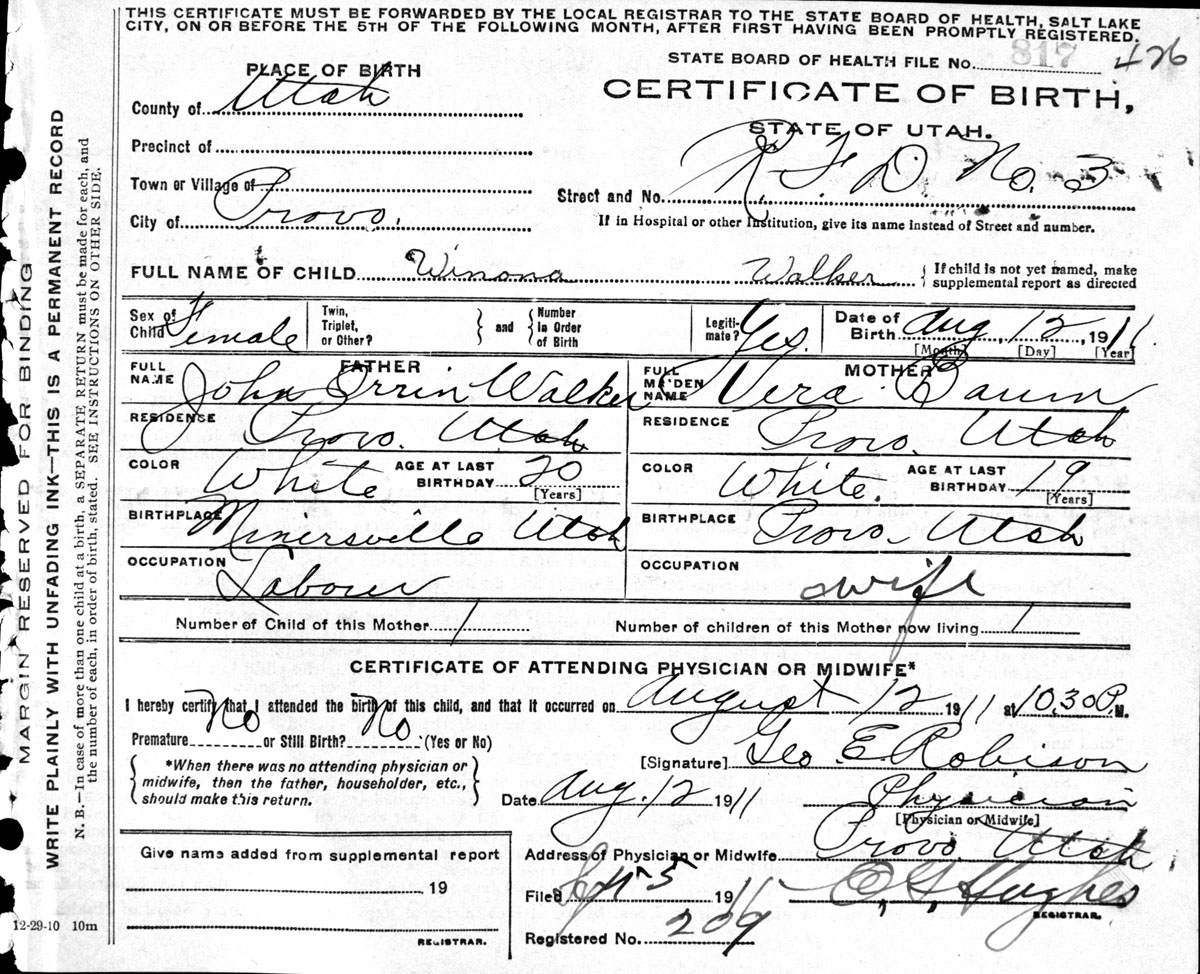 THIS CERTIFICATE MUST BE FORWARDED BY THE LOCAL REGISTRAR TO THE STATE BOARD OF HEALTH, SALT LAKE
CITY, ON OR BEFORE THE 5TH OF THE FOLLOWING MONTH, AFTER FIRST HAVING BEEN PROMPTLY REGISTERED.
STATE BOARD OF HEALTH FILE No. 817 426
PLACE OF BIRTH
CERTIFICATE OF BIRTH,
County of Utah
STATE OF UTAH.
Precinct of
Town or Village of
Street and No. R. F. D. No. 3
City of Provo.
If in Hospital or other Institution, give its name instead of Street and number.
FULL NAME OF CHILD Winona Walker { If child is not yet named, make supplemental report as directed
Sex of Child Female Twin, Triplet, or Other? } and { Number in Order of Birth Legiti-mate? Yes. Date of Birth Aug, 12, 1911
[Month] [Day] [Year]
FATHER MOTHER
FULL NAME John Orrin Walker FULL MAIDEN NAME Vera Baum
RESIDENCE Provo. Utah RESIDENCE Provo. Utah
COLOR White AGE AT LAST BIRTHDAY 20 [Years] COLOR White. AGE AT LAST BIRTHDAY 19 [Years]
BIRTHPLACE Minersville Utah BIRTHPLACE Provo. Utah
OCCUPATION Laborer OCCUPATION wife
Number of Child of this Mother 1 Number of children of this Mother now living 1
CERTIFICATE OF ATTENDING PHYSICIAN OR MIDWIFE*
I hereby certify that I attended the birth of this child, and that it occurred on August 12 1911 at 10,30 P. M.
Premature No or Still Birth? No (Yes or No)
[Signature] Geo. E. Robison
{ *When there was no attending physician or midwife, then the father, householder, etc., should make this return. }
Date Aug. 12 1911 Physician
[Physician or Midwife]
Give name added from supplemental report
Address of Physician or Midwife Provo Utah.
19
Filed Sept 5 1911 C, G, Hughes
REGISTRAR.
Registered No. 209
REGISTRAR.
12-29-10 10m
MARGIN RESERVED FOR BINDING
WRITE PLAINLY WITH UNFADING INK—THIS IS A PERMANENT RECORD
N. B.—In case of more than one child at a birth, a SEPARATE RETURN must be made for each, and
the number of each, in order of birth, stated. SEE INSTRUCTIONS ON OTHER SIDE.